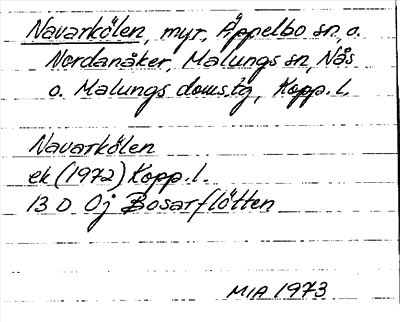 Navarkölen, myr, Äppelbo sn, o.
Nordanåker, Malungs sn, Nås
o. Malungs doms.tg, Kopp. l.
Navarkölen
ek (1972) Kopp. l.
13 D 0j Bosarflötten
MIA 1973